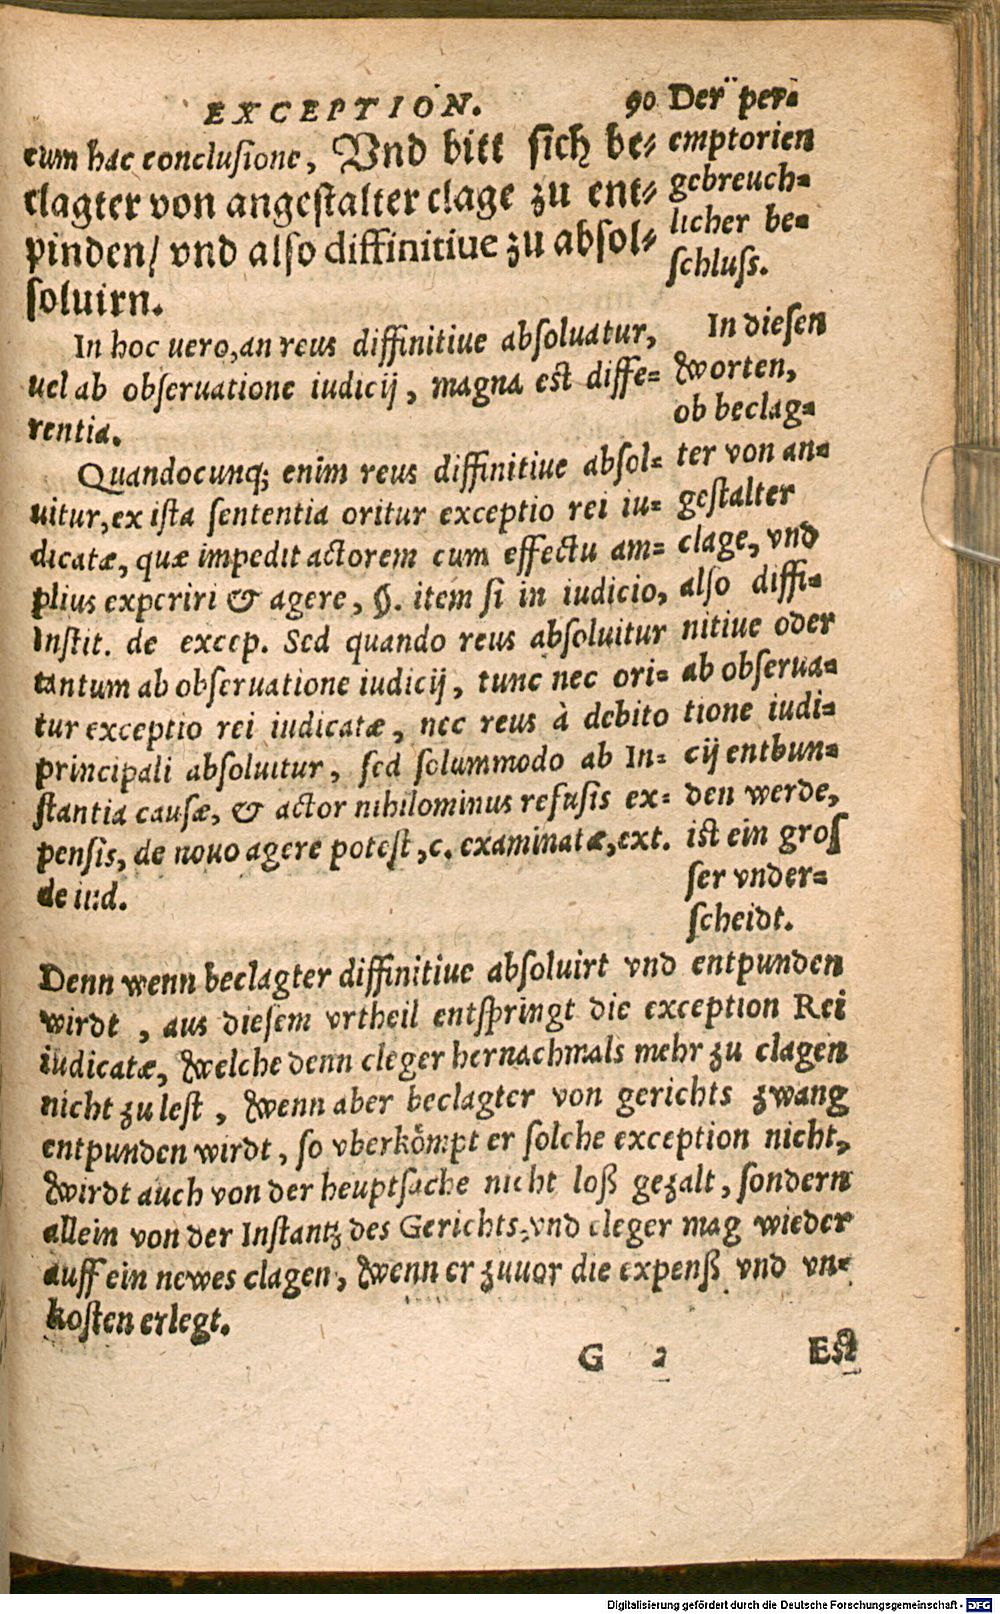 EXCEPTION. 90
cum hac conclusione, Vnd bitt sich be-
clagter von angestalter clage zu ent-
pinden/ vnd also diffinitiue zu absol-
soluirn.
In hoc uero, an reus diffinitiue absoluatur,
uel ab obseruatione iudicij, magna est diffe-
rentia.
Quandocunq; enim reus diffinitiue absol-
uitur, ex ista sententia oritur exceptio rei iu-
dicatæ, quæ impedit actorem cum effectu am-
plius experiri & agere, §. item si in iudicio,
Instit. de excep. Sed quando reus absoluitur
tantum ab obseruatione iudicij, tunc nec ori-
tur exceptio rei iudicatæ, nec reus à debito
principali absoluitur, sed solummodo ab In-
stantia causæ, & actor nihilominus refusis ex-
pensis, de nouo agere potest, c. examinatæ, ext.
de iud.
Der per-
emptorien
gebreuch-
licher be-
schluss.
In diesen
worten,
ob beclag-
ter von an-
gestalter
clage, vnd
also diffi-
nitiue oder
ab obserua-
tione iudi-
cij entbun-
den werde,
ist ein gros
ser vnder-
scheidt.
Denn wenn beclagter diffinitiue absoluirt vnd entpunden
wirdt, aus diesem vrtheil entspringt die exception Rei
iudicatæ, welche denn cleger hernachmals mehr zu clagen
nicht zu lest, wenn aber beclagter von gerichts zwang
entpunden wirdt, so vberkömpt er solche exception nicht,
wirdt auch von der heuptsache nicht loß gezalt, sondern
allein von der Instantz des Gerichts, vnd cleger mag wieder
auff ein newes clagen, wenn er zuuor die expenß vnd vn-
kosten erlegt.
G 2 Est
Digitalisierung gefördert durch die Deutsche Forschungsgemeinschaft - DFG